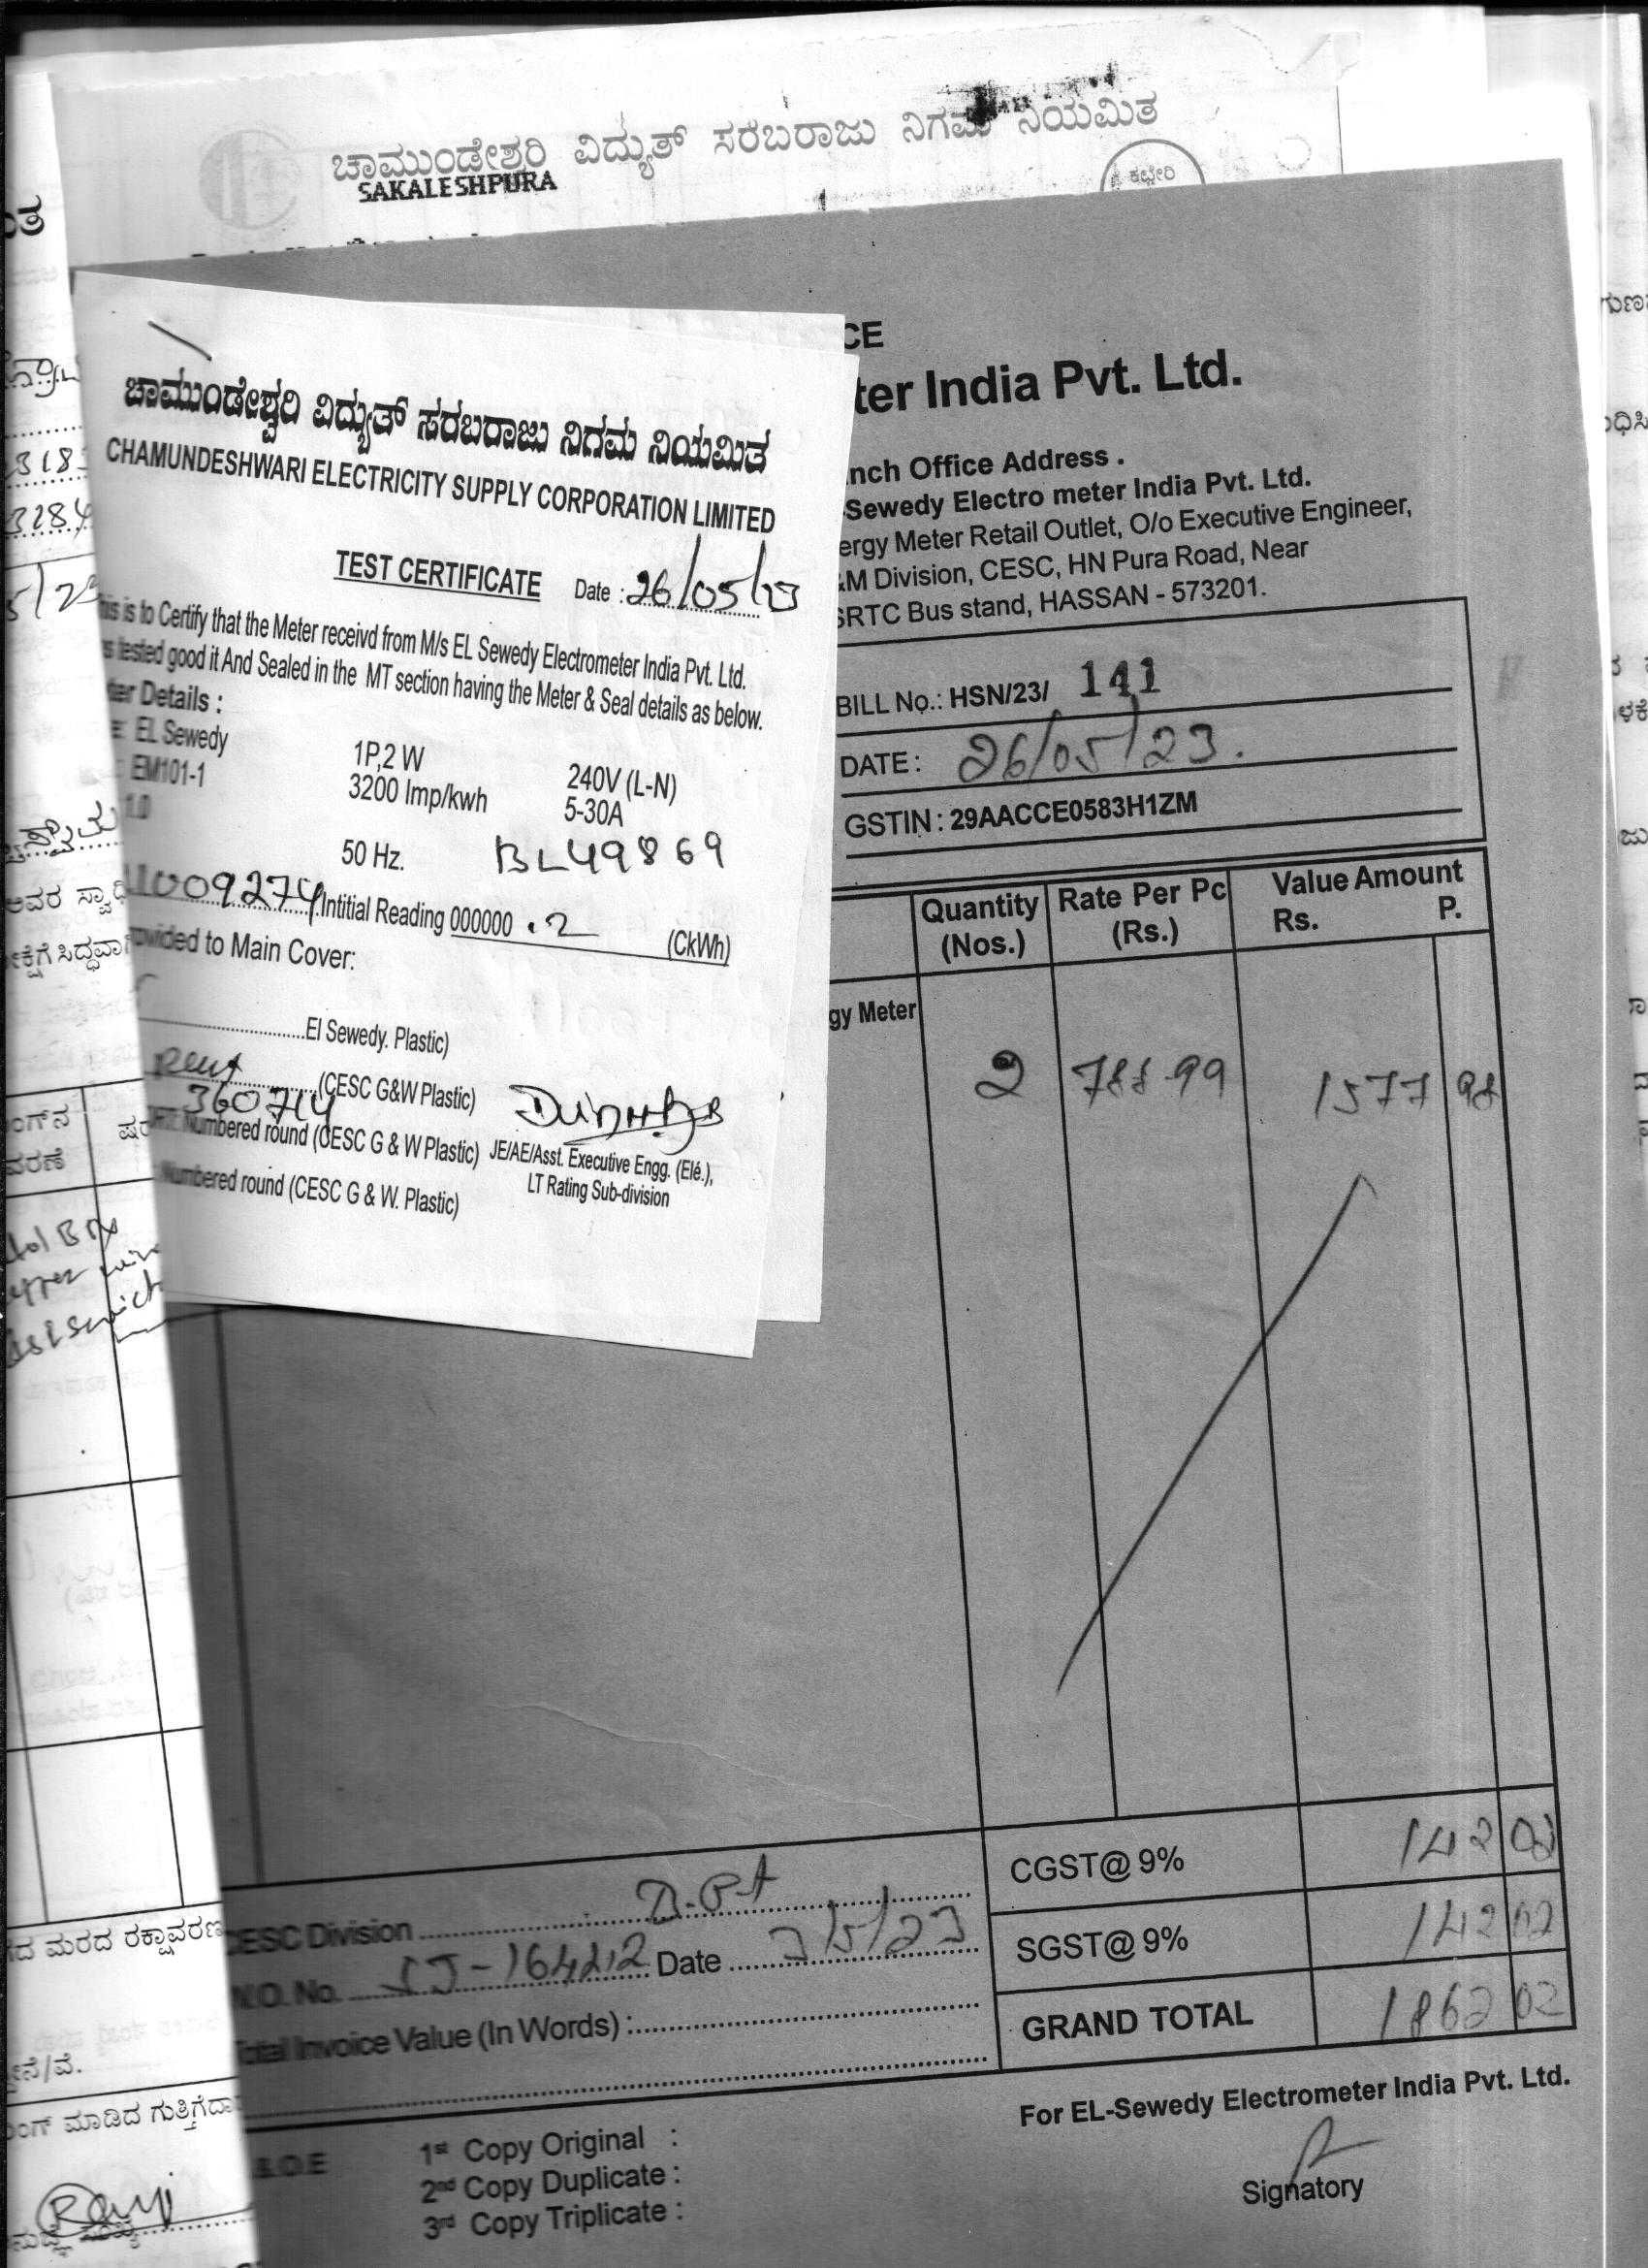 ಚಾಮುಂಡೇಶ್ವರಿ ವಿದ್ಯುತ್ ಸರಬರಾಜು ನಿಗಮ ನಿಯಮಿತ
SAKALESHPURA
ಕಛೇರಿ
ಚಾಮುಂಡೇಶ್ವರಿ ವಿದ್ಯುತ್ ಸರಬರಾಜು ನಿಗಮ ನಿಯಮಿತ
CHAMUNDESHWARI ELECTRICITY SUPPLY CORPORATION LIMITED
TEST CERTIFICATE Date : 26/05/23
is to Certify that the Meter receivd from M/s EL Sewedy Electrometer India Pvt. Ltd.
tested good it And Sealed in the MT section having the Meter & Seal details as below.
Details :
EL Sewedy 1P,2 W 240V (L-N)
EM101-1 3200 Imp/kwh 5-30A
1.0
50 Hz. BL49869
009274 Intitial Reading 000000 .2 (CkWh)
to Main Cover:
El Sewedy. Plastic)
(CESC G&W Plastic)
360714
Numbered round (CESC G & W Plastic) JE/AE/Asst. Executive Engg. (Elé.),
Numbered round (CESC G & W. Plastic) LT Rating Sub-division
CE
ter India Pvt. Ltd.
nch Office Address .
-Sewedy Electro meter India Pvt. Ltd.
ergy Meter Retail Outlet, O/o Executive Engineer,
M Division, CESC, HN Pura Road, Near
SRTC Bus stand, HASSAN - 573201.
BILL No.: HSN/23/ 141
DATE : 26/05/23.
GSTIN : 29AACCE0583H1ZM
Quantity (Nos.) Rate Per Pc (Rs.) Value Amount Rs. P.
gy Meter 2 788.99 1577 98
CGST@ 9% 142 02
SGST@ 9% 142 02
GRAND TOTAL 1862 02
CESC Division
W.O. No. Date
Total Invoice Value (In Words) :
For EL-Sewedy Electrometer India Pvt. Ltd.
Signatory
& O.E
1st Copy Original :
2nd Copy Duplicate :
3rd Copy Triplicate :
3284
ಅವರ
ಮರದ ರಕ್ಷಾವರಣ
ಮಾಡಿದ